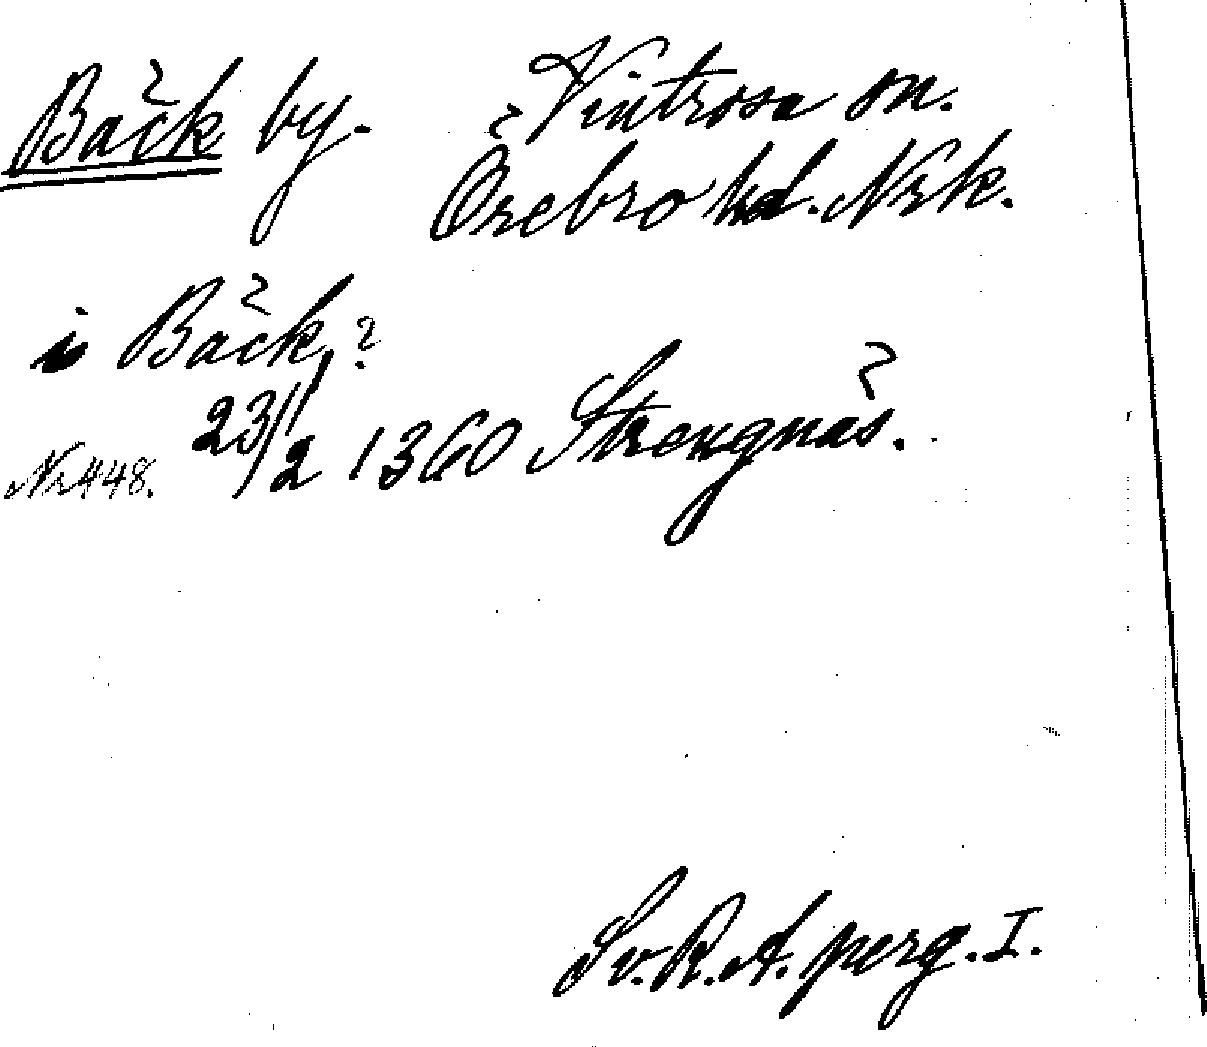 Bäck by. Vintrosa sn.
Örebro hd. Nrk.
i Bäck?
Nr 448. 23/2 1360 Strengnäs.
Sv. R. A. perg. I.